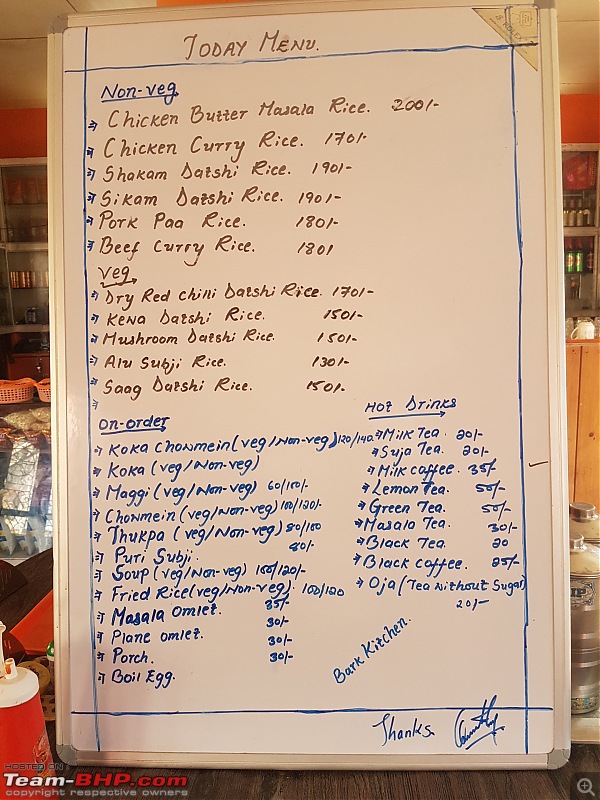 TODAY MENU.
Non-veg
Chicken Butter Masala Rice. 200/-
Chicken Curry Rice. 170/-
Shakam Datshi Rice. 190/-
Sikam Datshi Rice. 190/-
Pork Paa Rice. 180/-
Beef Curry Rice. 180/
Veg
Dry Red Chilli Datshi Rice. 170/-
Kewa Datshi Rice. 150/-
Mushroom Datshi Rice. 150/-
Alu Subji Rice. 130/-
Saag Datshi Rice. 150/-
On-order
Koka Chowmein (veg/Non-veg) 120/140
Koka (veg/Non-veg)
Maggi (veg/Non-veg) 60/
Chowmein (veg/Non-veg) 100/120/-
Thukpa (veg/Non-veg) 80/100
Puri Subji. 80/-
Soup (veg/Non-veg) 100/120/-
Fried Rice (veg/Non-veg). 100/120
Masala omlet. 35/-
Plane omlet. 30/-
Porch. 30/-
Boil Egg. 30/-
Hot Drinks
Milk Tea. 20/-
Suja Tea. 20/-
Milk Coffee. 35/-
Lemon Tea. 50/-
Green Tea. 50/-
Masala Tea. 30/-
Black Tea. 20
Black coffee. 25/-
Oja (Tea without Sugar)
20/-
Bark Kitchen.
Thanks.
HOSTED ON
Team-BHP.com
copyright respective owners